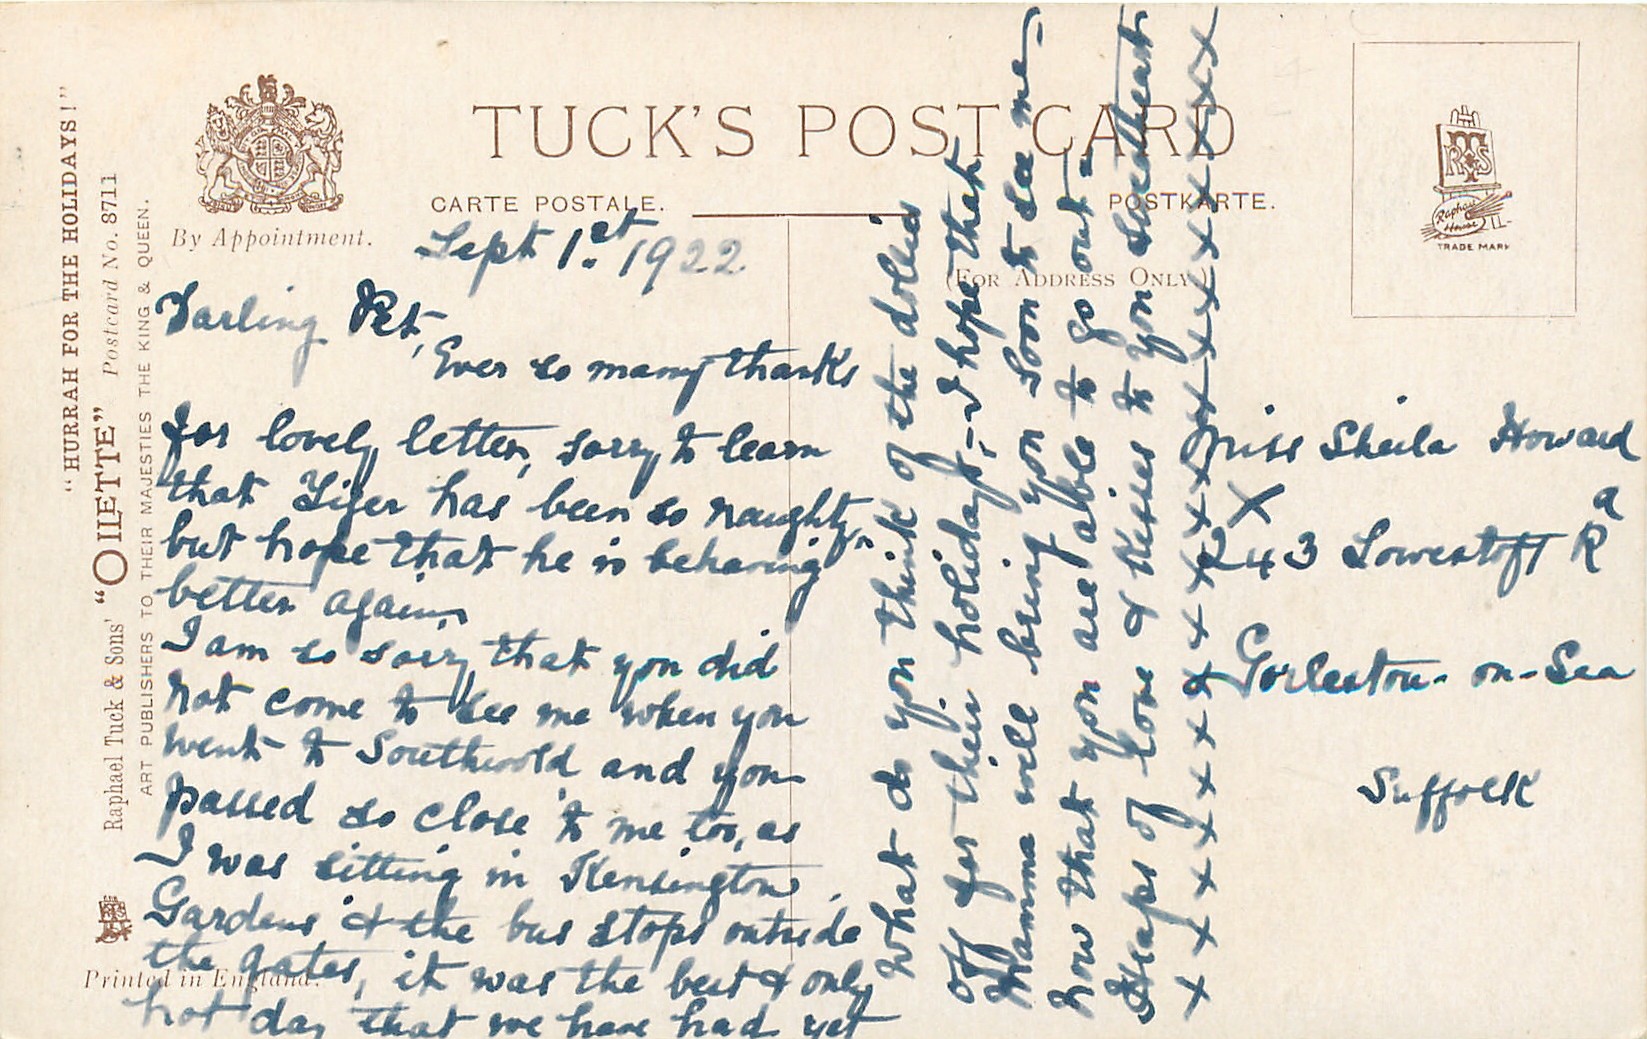 "HURRAH FOR THE HOLIDAYS!"
Raphael Tuck & Sons' "OILETTE" Postcard No. 8711
ART PUBLISHERS TO THEIR MAJESTIES THE KING & QUEEN.
By Appointment.
TUCK'S POST CARD
CARTE POSTALE.
POSTKARTE.
(FOR ADDRESS ONLY)
Raphael House
TRADE MARK
Printed in England.
Sept 1st 1922
Darling Pet,
Ever so many thanks
for lovely letter, sorry to learn
that Tiger has been so naughty,
but hope that he is behaving
better again,
I am so sorry that you did
not come to see me when you
went to Southwold and you
passed so close to me too, as
I was sitting in Kensington
Gardens & the bus stops outside
the gates, it was the best & only
hot day that we have had yet
What do you think of the dollies
off for their holidays, – I hope that
Mamma will bring you soon to see me
now that you are able to go out –
Heaps of love & kisses to you sweetheart
x x x x x x x x x x x x x x x x x x x x x x
Miss Sheila Howard
X
243 Lowestoft Rd
Gorleston-on-Sea
Suffolk